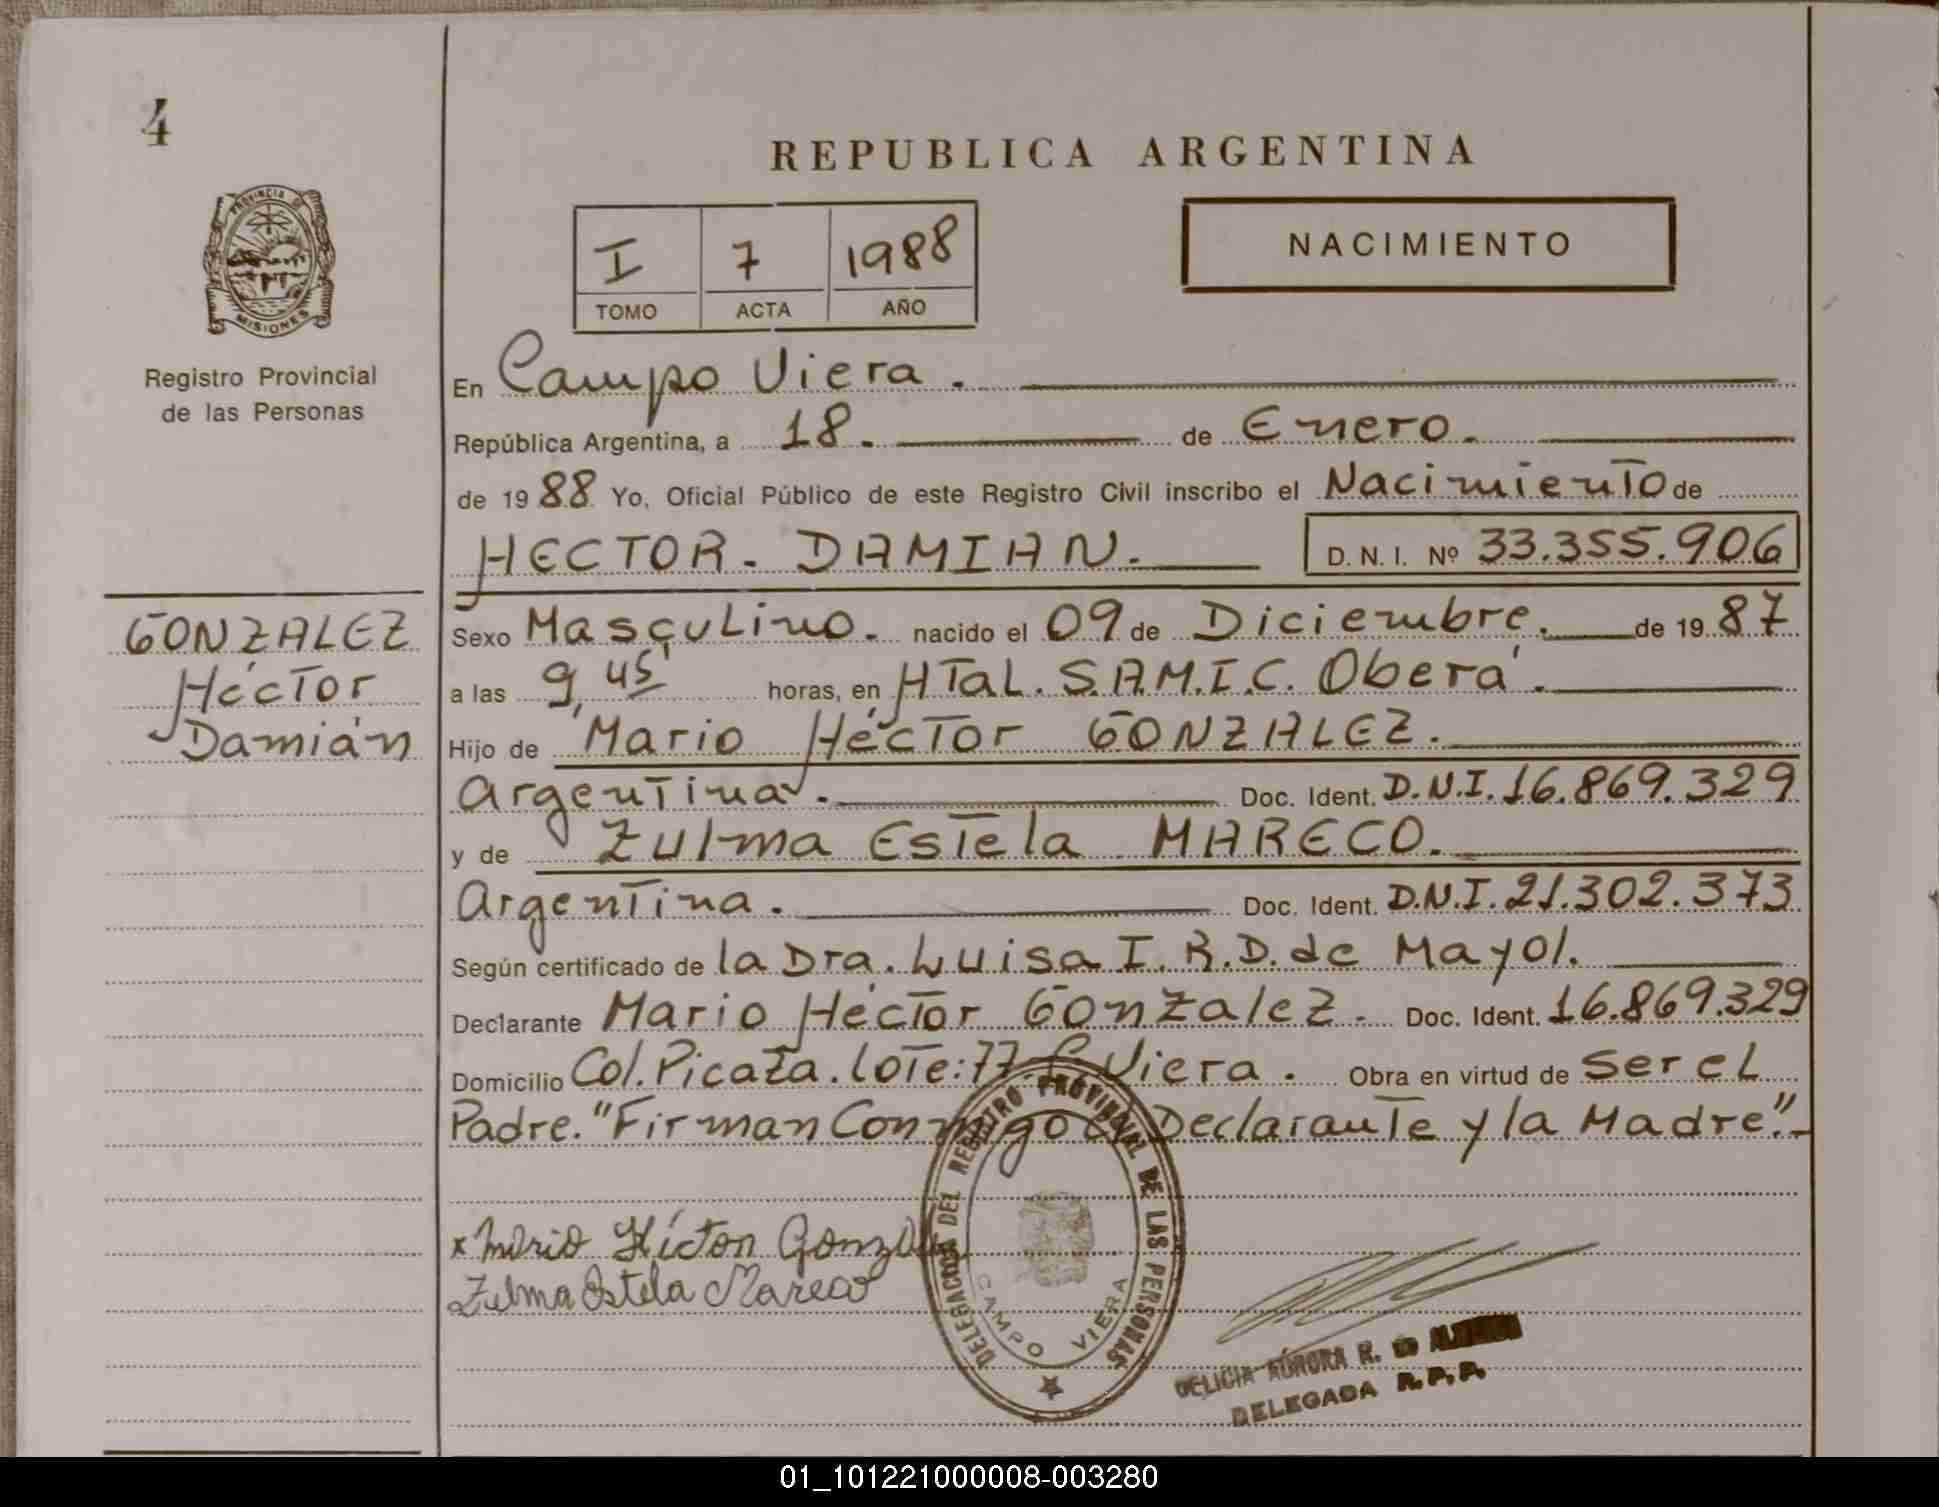 4
REPUBLICA ARGENTINA
PROVINCIA DE
MISIONES
Registro Provincial
de las Personas
I 7 1988
TOMO ACTA AÑO
NACIMIENTO
En Campo Viera.
República Argentina, a 18. de Enero.
de 1988 Yo, Oficial Público de este Registro Civil inscribo el Nacimiento de
HECTOR - DAMIAN. D. N. I. Nº 33.355.906
GONZALEZ
Héctor
Damián
Sexo Masculino. nacido el 09 de Diciembre. de 1987
a las 9,45 horas, en HTal. S.A.M.I.C. Oberá.
Hijo de Mario Héctor GONZALEZ.
Argentina. Doc. Ident. D.N.I. 16.869.329
y de Zulma Estela MARECO.
Argentina. Doc. Ident. D.N.I. 21.302.373
Según certificado de la Dra. Luisa I. R. D. de Mayol.
Declarante Mario Héctor Gonzalez. Doc. Ident. 16.869.329
Domicilio Col. Picaza. lote: 77. C. Viera. Obra en virtud de Ser el
Padre. "Firman Conmigo el Declarante y la Madre".-
x Mario Héctor Gonzalez
Zulma Estela Mareco
DELEGACION DEL REGISTRO PROVINCIAL DE LAS PERSONAS
CAMPO VIERA
DELICIA AURORA R. de
DELEGADA R.P.P.
01_101221000008-003280